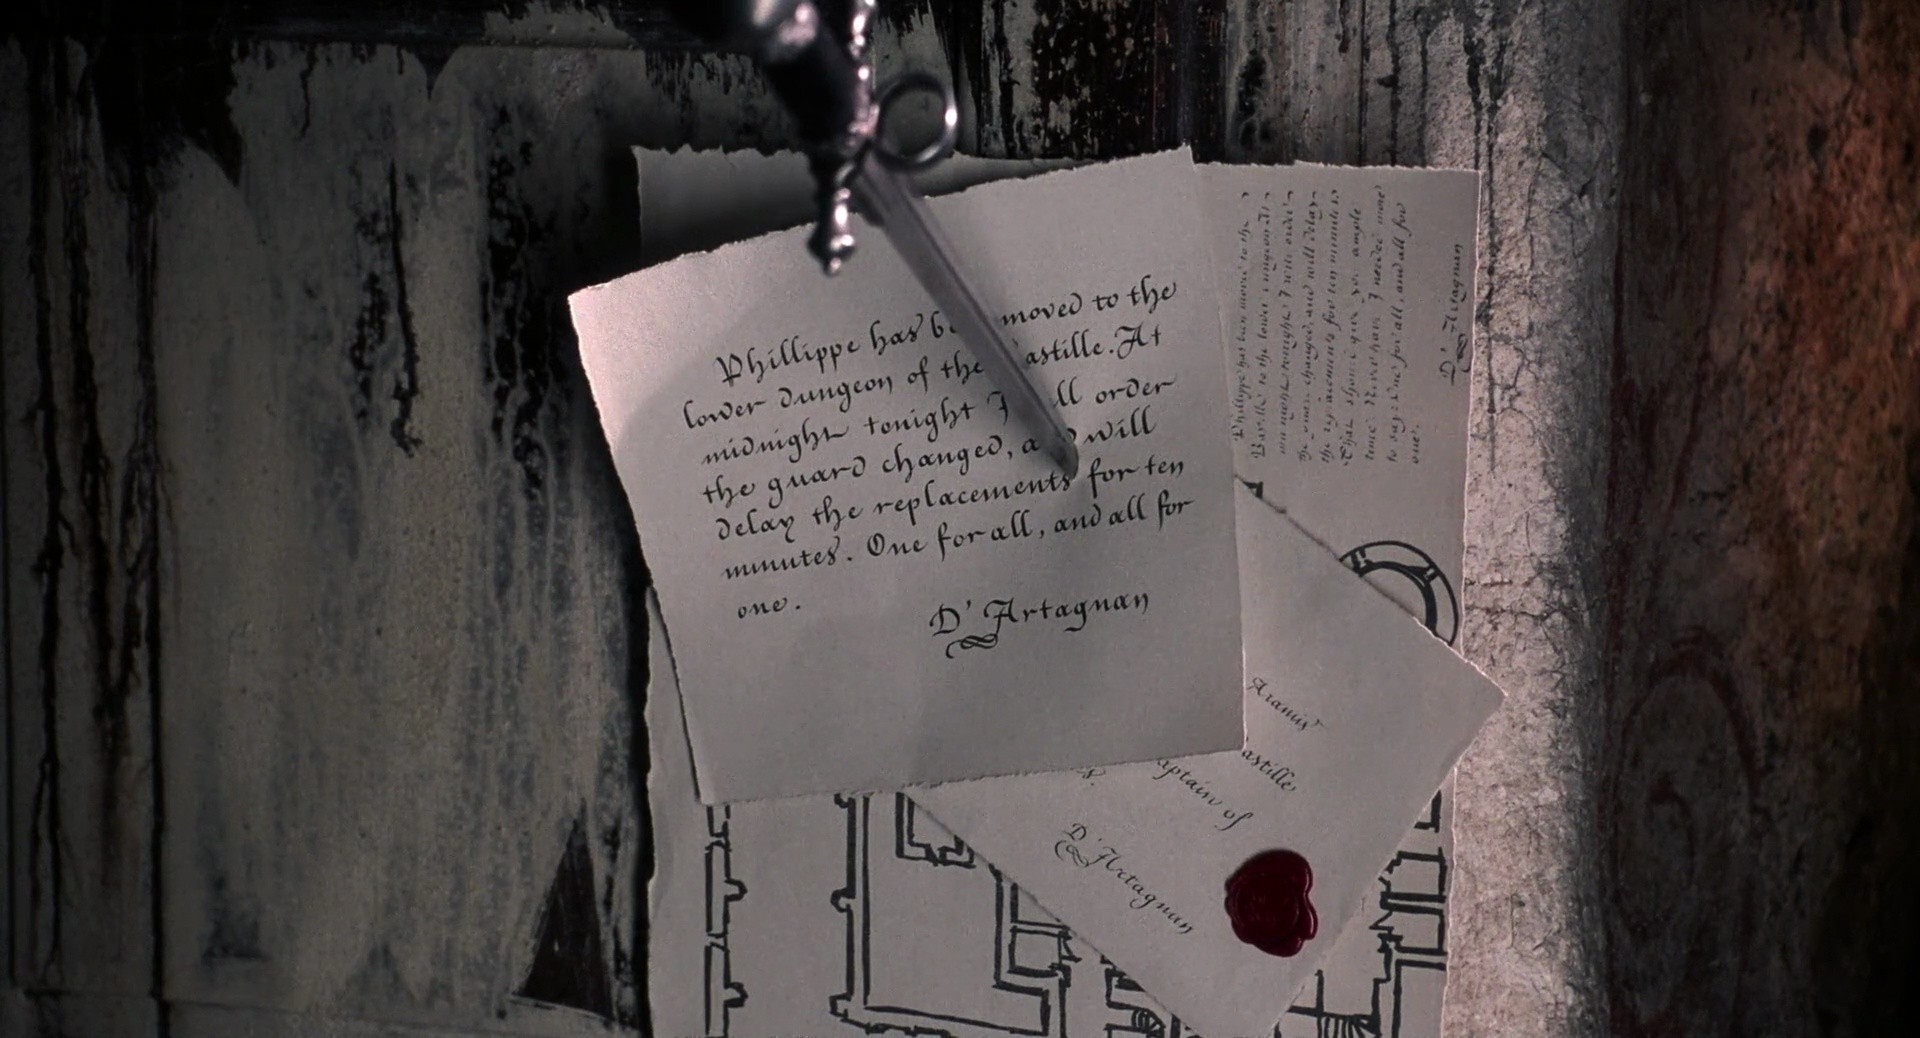 Phillippe has b moved to the
lower dungeon of the astille. At
midnight tonight I ll order
the guard changed, a will
delay the replacements for ten
minutes. One for all, and all for
one.
D'Artagnan
Phillippe has been moved to the
to the lower
midnight tonight I will order
changed, and will delay
the replacements for ten minutes.
That should give you ample
time
for all, and all for
one.
D'Artagnan
Aramis
astille
aptain of
D'Artagnan